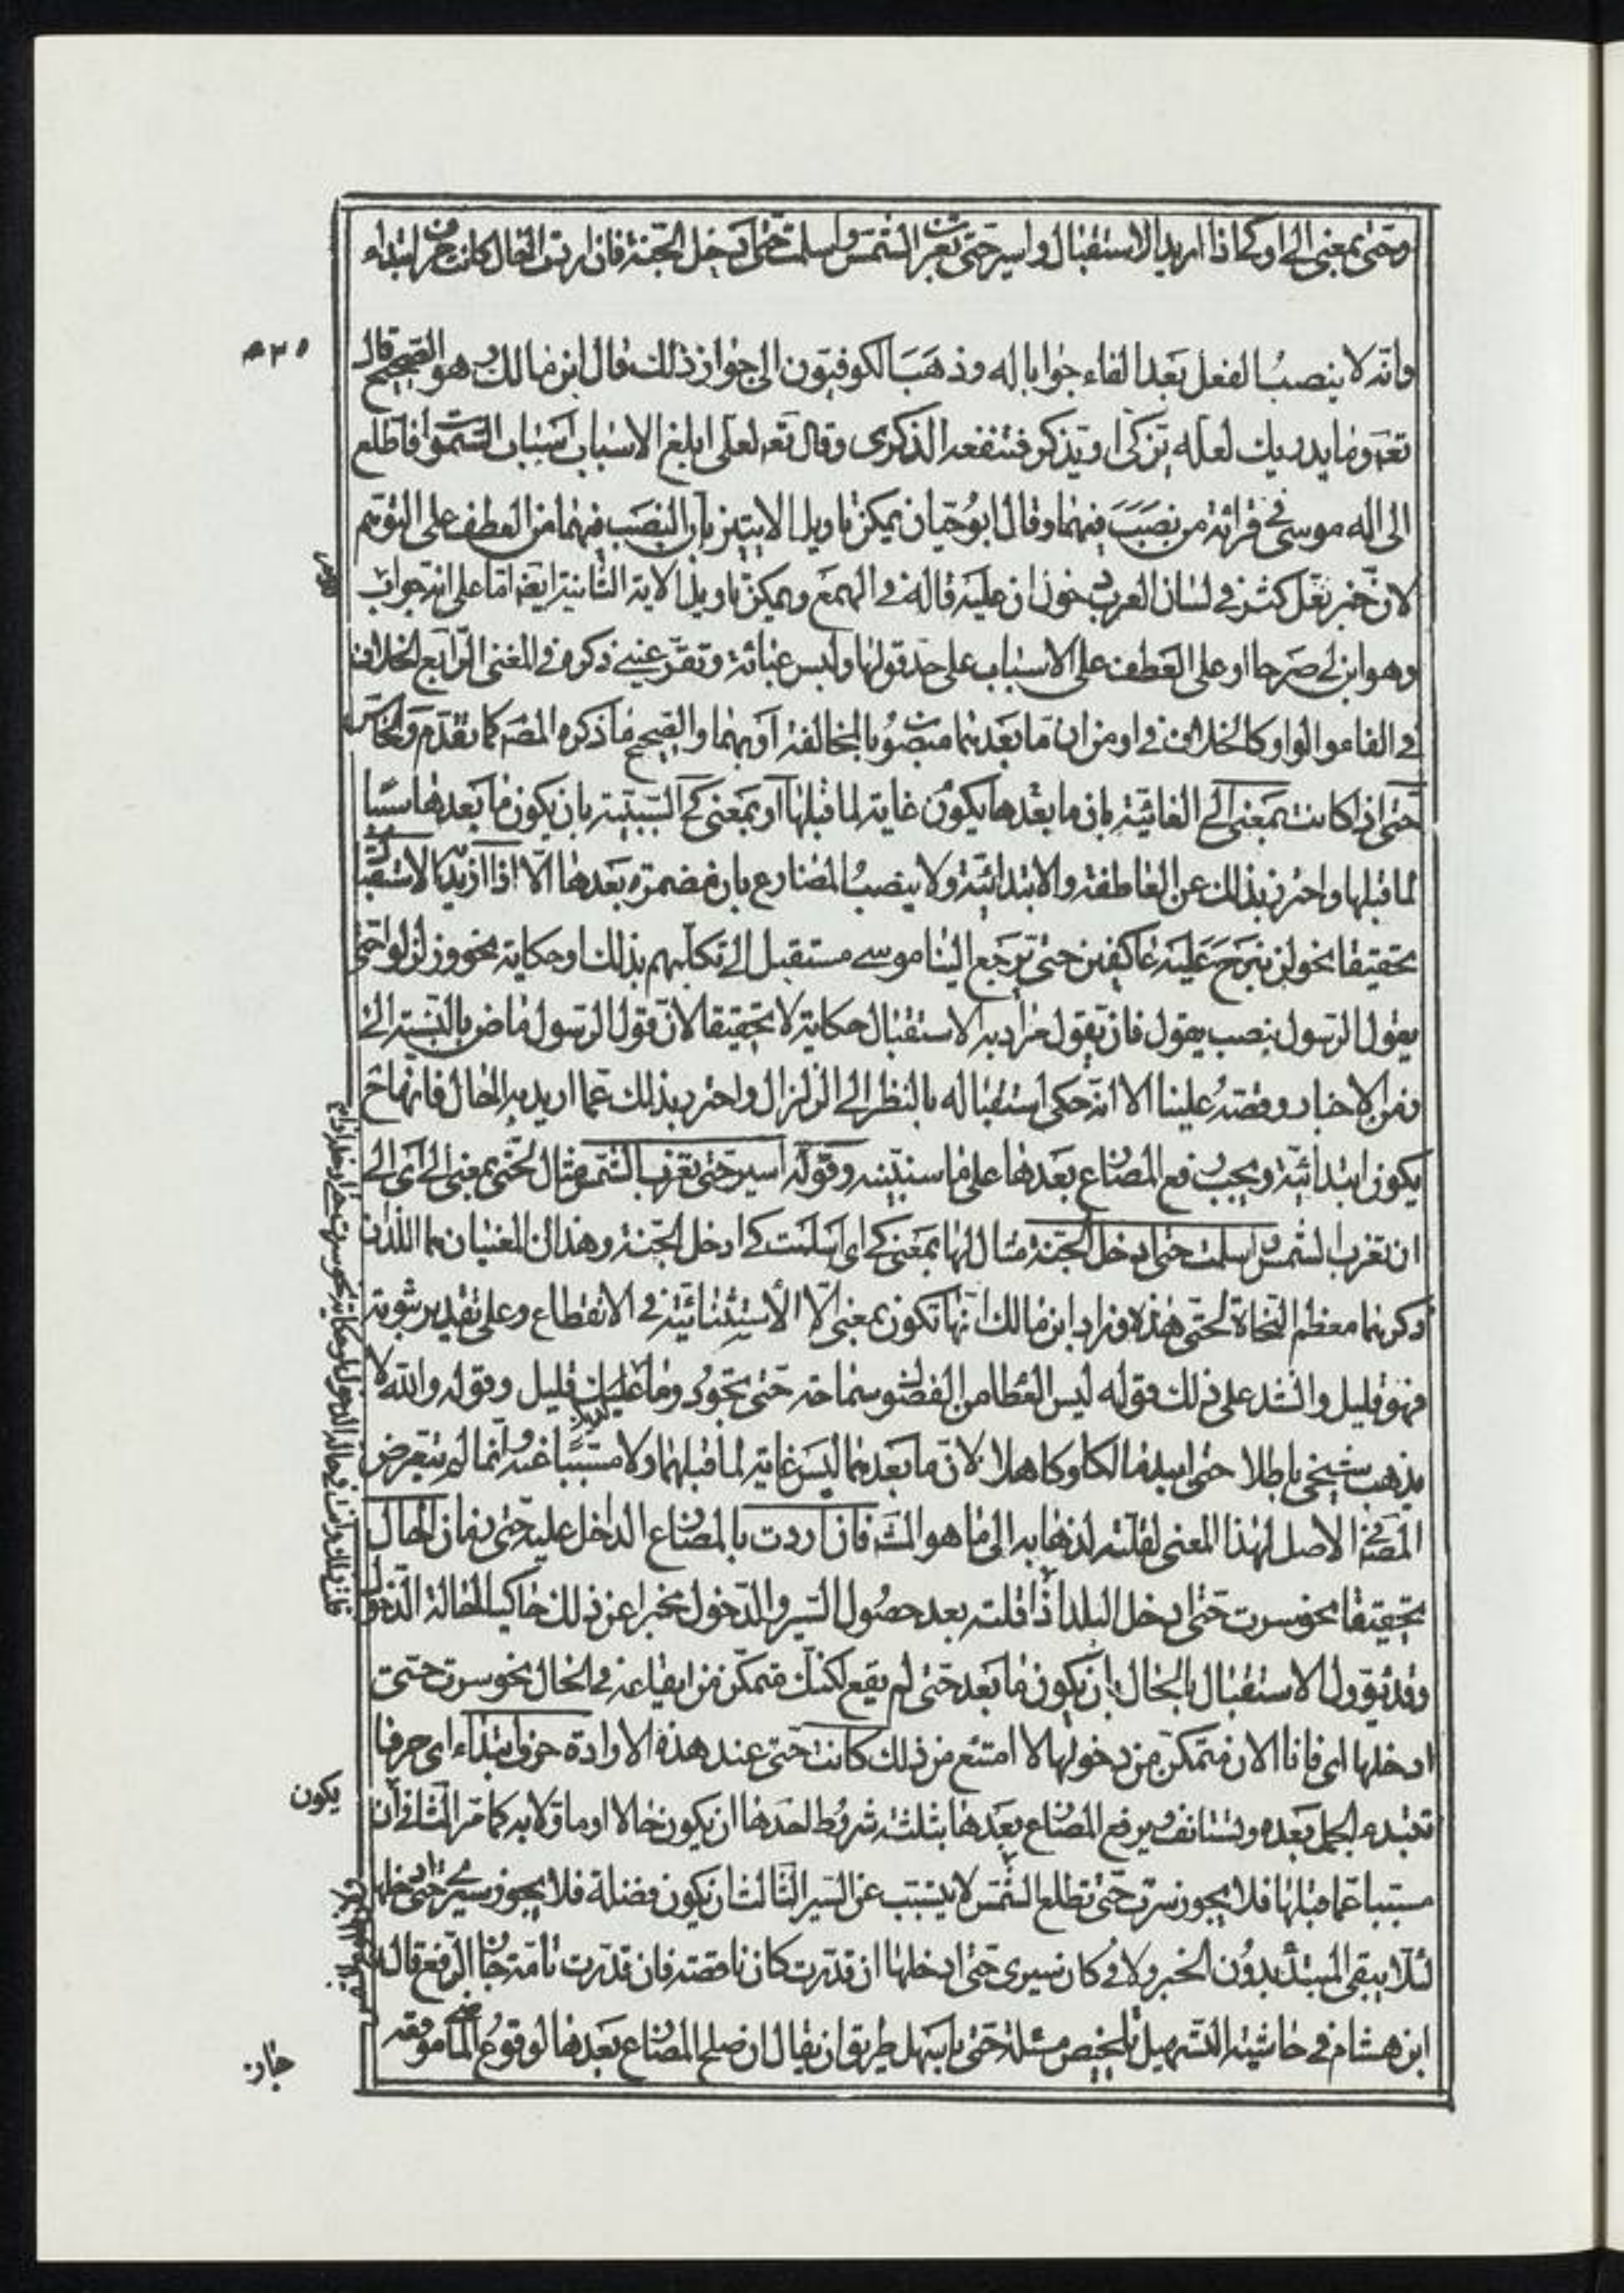 وحتى بمعنى إلى او كى اذا اريد الاستقبال واسير حتى تغرب الشمس واسلمت حتى ادخل الجنة فان اردت الحال كانت حرف ابتداء
وانه لا ينصب الفعل بعد الفاء جوابا له وذهب الكوفيون الى جواز ذلك قال ابن مالك وهو الصحيح قال
تعه وما يدريك لعله يزكى او يذكر فتنفعه الذكرى وقال تعه لعلى ابلغ الاسباب اسباب السموات فاطلع
الى اله موسى فى قرائة من نصب فيهما وقال ابو حيان يمكن تاويل الايتين بان النصب فيهما من العطف على التوهم
لان خبر لعل كثر فى لسان العرب دخول ان عليه قاله فى الهمع ويمكن تاويل الاية الثانية ايضه اما على انه جواب
وهو ابن لى صرحا او على العطف على الاسباب على حد قولها ولبس عبائة وتقر عينى ذكره فى المغنى الرابع الخلاف
فى الفاء والواو كالخلاف فى او من ان ما بعدهما منصوب بالمخالفة او بهما والصحيح ما ذكره المصه كما تقدم والخامس
حتى اذا كانت بمعنى الى الغائية بان ما بعدها يكون غاية لما قبلها او بمعنى كى السببية بان يكون ما بعدها سببا
لما قبلها واحترز بذلك عن العاطفة والابتدائية ولا ينصب المضارع بان مضمرة بعدها الا اذا اريد به الاستقبال
تحقيقا نحو لن نبرح عليه عاكفين حتى يرجع الينا موسى مستقبل الى تكلمهم بذلك او حكاية نحو وزلزلوا حتى
يقول الرسول بنصب يقول فان يقول مراد به الاستقبال حكاية لا تحقيقا لان قول الرسول ماض بالنسبة الى
زمن الاخبار وقصته علينا الا انه حكى استقباله بالنظر الى الزلزال واحترز بذلك عما اريد به الحال فانها ح
يكون ابتدائية ويجب رفع المضارع بعدها على ما سنبينه وقوله اسير حتى تغرب الشمس مثال لحتى بمعنى الى اى الى
ان تغرب الشمس واسلمت حتى ادخل الجنة مثال لها بمعنى كى اى اسلمت كى ادخل الجنة وهذان المعنيان هما اللذان
ذكرهما معظم النحاة لحتى هذه وزاد ابن مالك انها تكون بمعنى الا الاستثنائية فى الانقطاع وعلى تقدير ثبوته
فهو قليل وانشد على ذلك قوله ليس العطاء من الفضول سماحة حتى تجود وما لديك قليل وقوله والله لا
يذهب شيخى باطلا حتى ابيد مالكا وكاهلا لان ما بعدهما ليس غاية لما قبلهما ولا مسببا عنه وانما لم يتعرض
المصه فى الاصل لهذا المعنى لقلته لذهابه الى ما هو المشه فان اردت بالمضارع الداخل عليه حتى زمان الحال
تحقيقا نحو سرت حتى ادخل البلد اذا قلته بعد حصول السير والدخول مخبرا عن ذلك حاكيا لحالة الدخول
وقد يؤول الاستقبال بالحال بان يكون ما بعد حتى لم يقع لكنك متمكن من ايقاعه فى الحال نحو سرت حتى
ادخلها اى فانا الان متمكن من دخولها لا امتنع من ذلك كانت حتى عند هذه الارادة حرف ابتداء اى حرفا
تبتدء الجمل بعده وتستانف ويرفع المضارع بعدها بثلثة شروط احدها ان يكون حالا او ماولا به كما مر الثانى ان
مسببا عما قبلها فلا يجوز سرت حتى تطلع الشمس لا يتسبب عن السير الثالث ان يكون فضلة فلا يجوز سيرى حتى ادخلها
لئلا يبقى المبتدأ بدون الخبر ولا فى كان سيرى حتى ادخلها ان قدرت كان ناقصة فان قدرت تامة جاز الرفع قال
ابن هشام فى حاشية التسهيل تلخيص مسئلة حتى باسهل طريق ان يقال ان صلح المضارع بعدها لوقوع الماضى موقعه
يكون
جاز